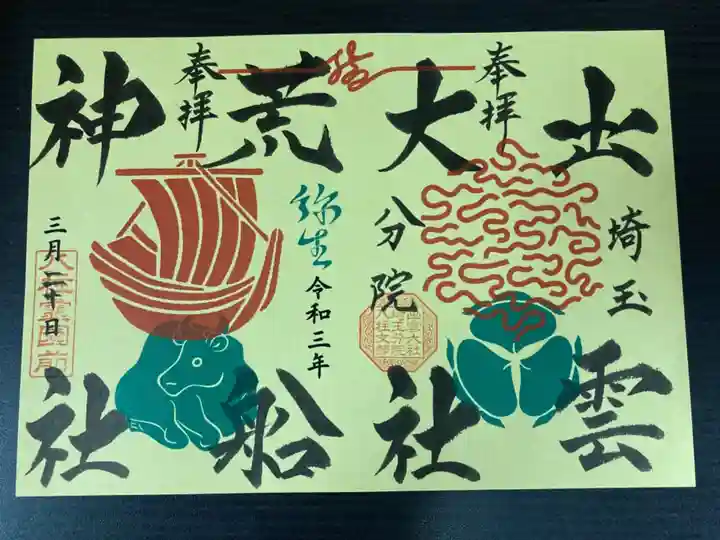 奉拝
出雲
埼玉
大社
分院
奉拝
荒船
弥生
令和三年
神社
三月二十日